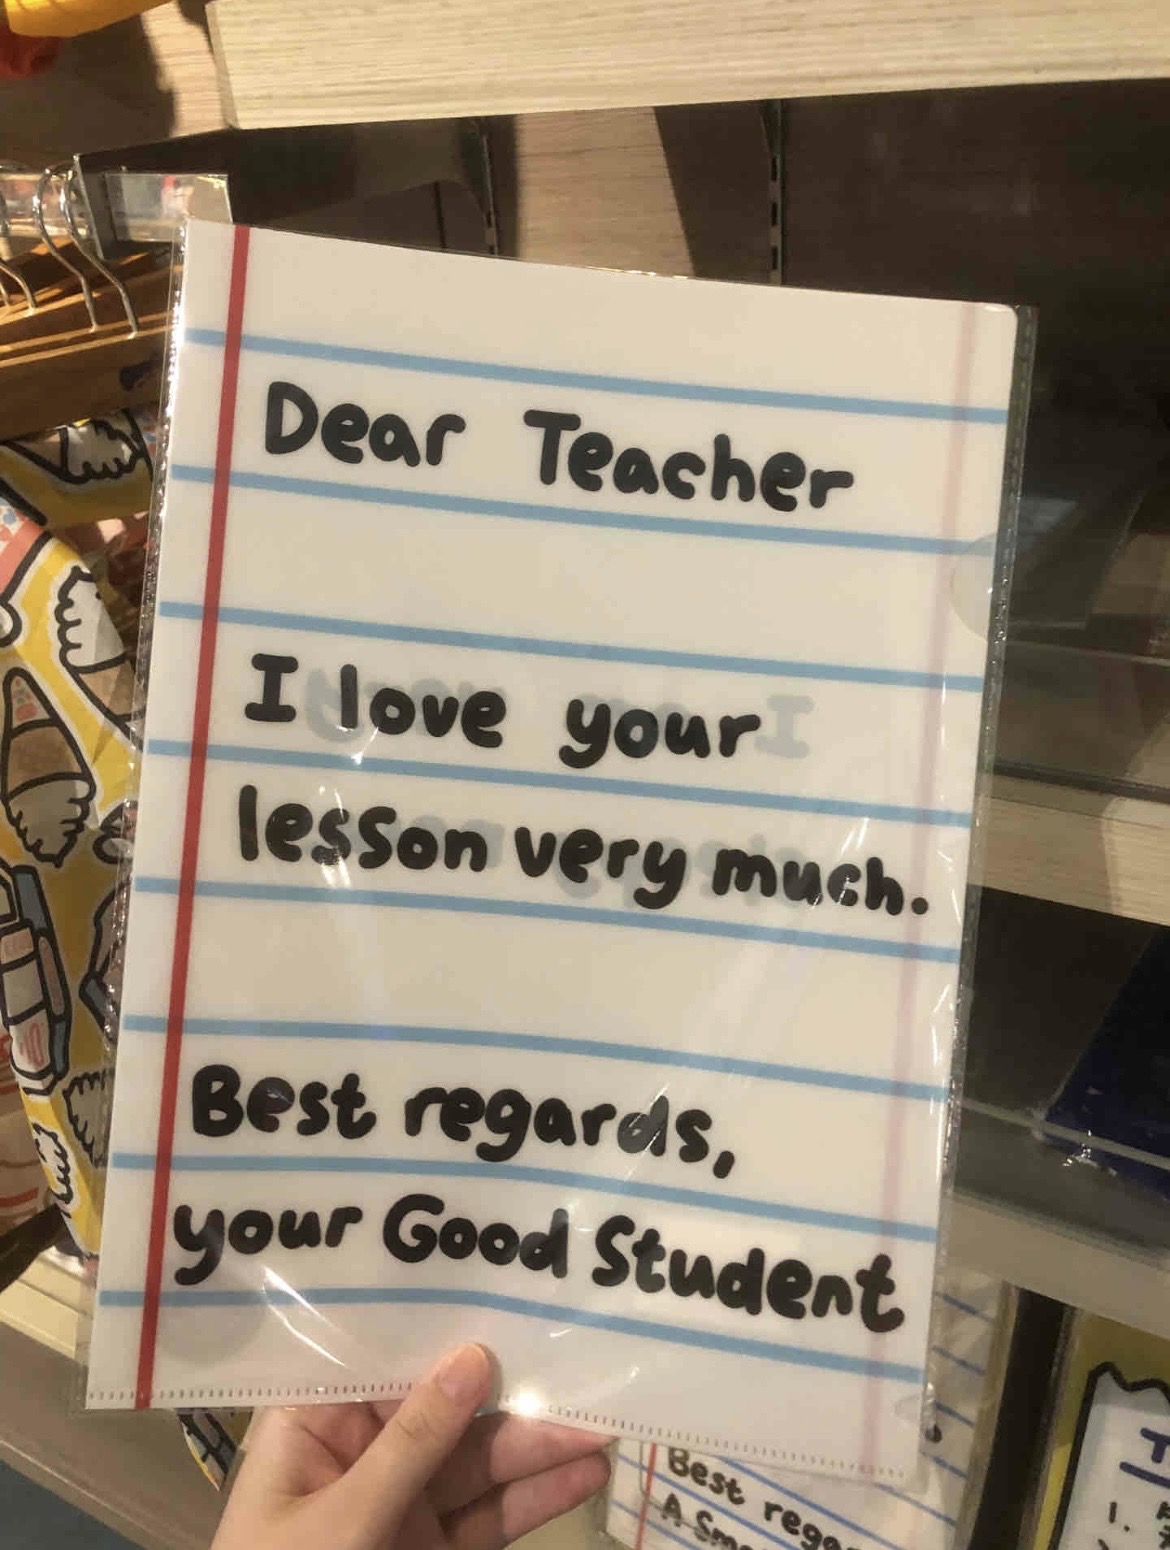 Dear Teacher
I love your
lesson very much.
Best regards,
your Good Student
Best
1.